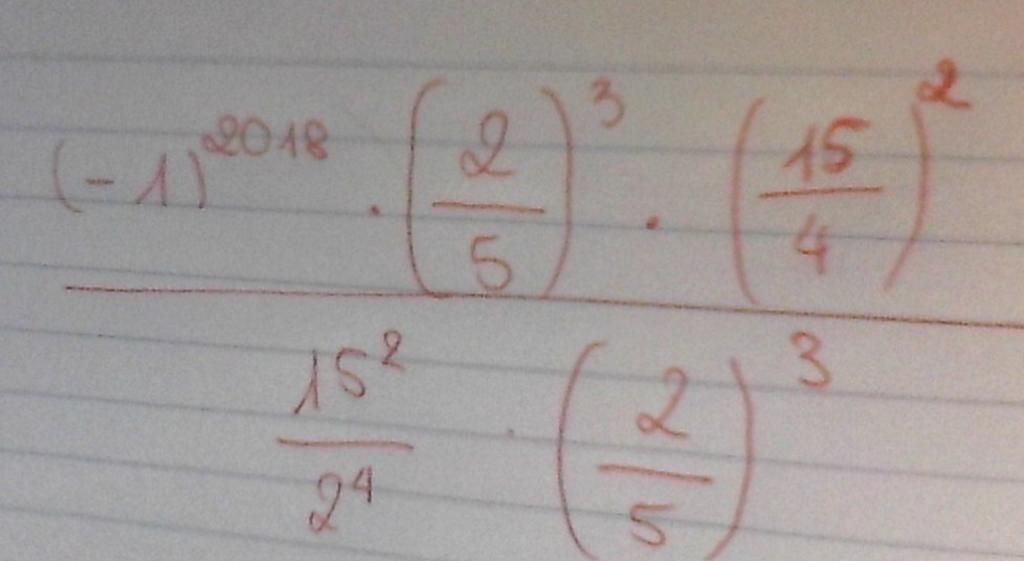 (-1)^2018 · (2/5)^3 · (15/4)^2
15^2/2^4 · (2/5)^3